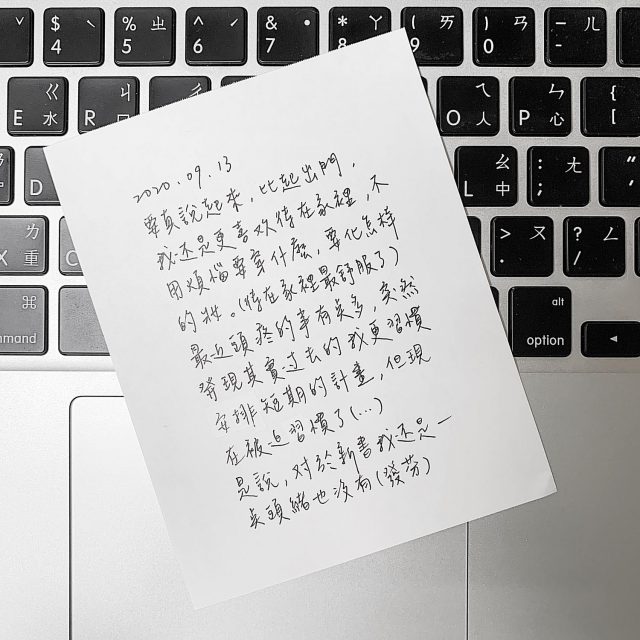 ˇ $ 4 ˋ % 5 ㄓ ^ 6 ˊ & 7 ˙ * 8 ㄚ ( 9 ㄞ ) 0 ㄢ - ㄦ
E ㄍ 水 R ㄐ 口 O ㄟ 人 P ㄣ 心 { [
D L ㄠ 中 : ; ㄤ "
X ㄌ 重 C > . ㄡ ? / ㄥ
⌘ command alt option ◀
2020.09.13
要真說起來，比起出門，
我还是更喜欢待在家裡，不
用煩惱要穿什麼，要化怎样
的妝。(待在家裡最舒服了)
最近頭疼的事有点多，突然
發現其實过去的我更習慣
安排短期的計畫，但現
在被迫習慣了(...)
是說，对於新書我还是一
点頭緒也沒有(發芬)